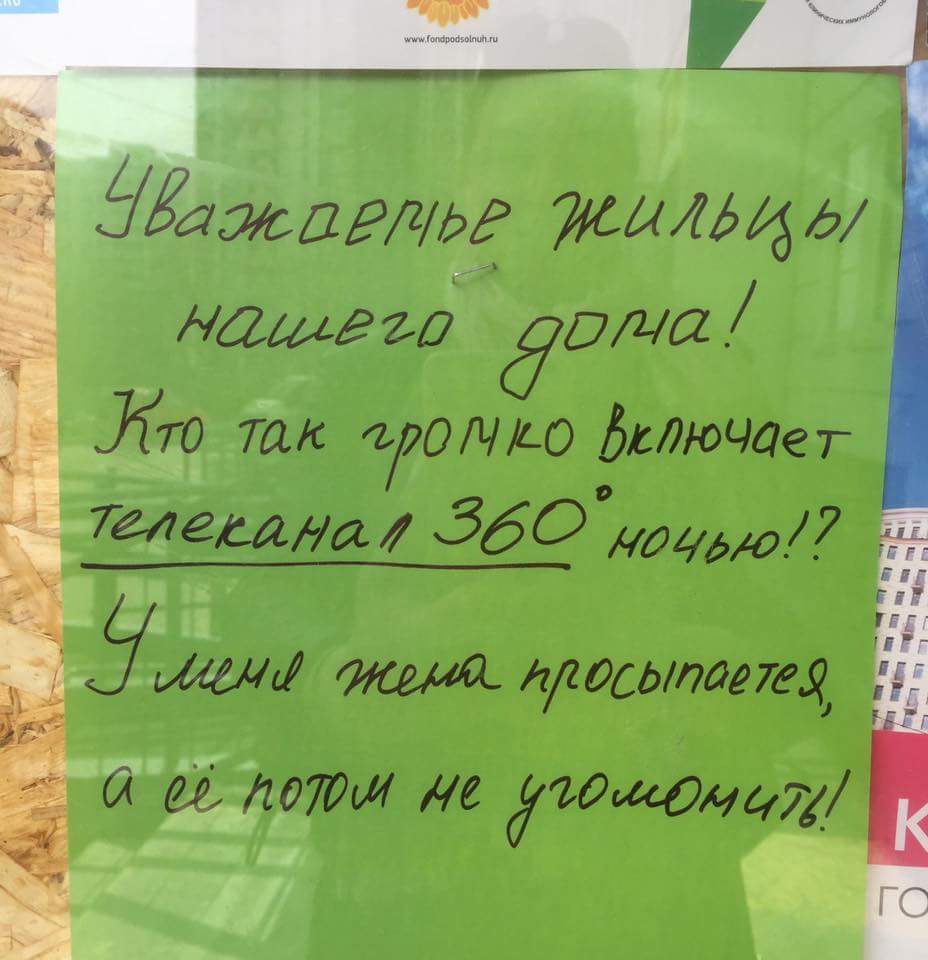 www.fondpodsolnuh.ru
Уважаемые жильцы
нашего дома!
Кто так громко включает
телеканал 360° ночью!?
У меня жена просыпается,
а её потом не угомонить!
К
ГО